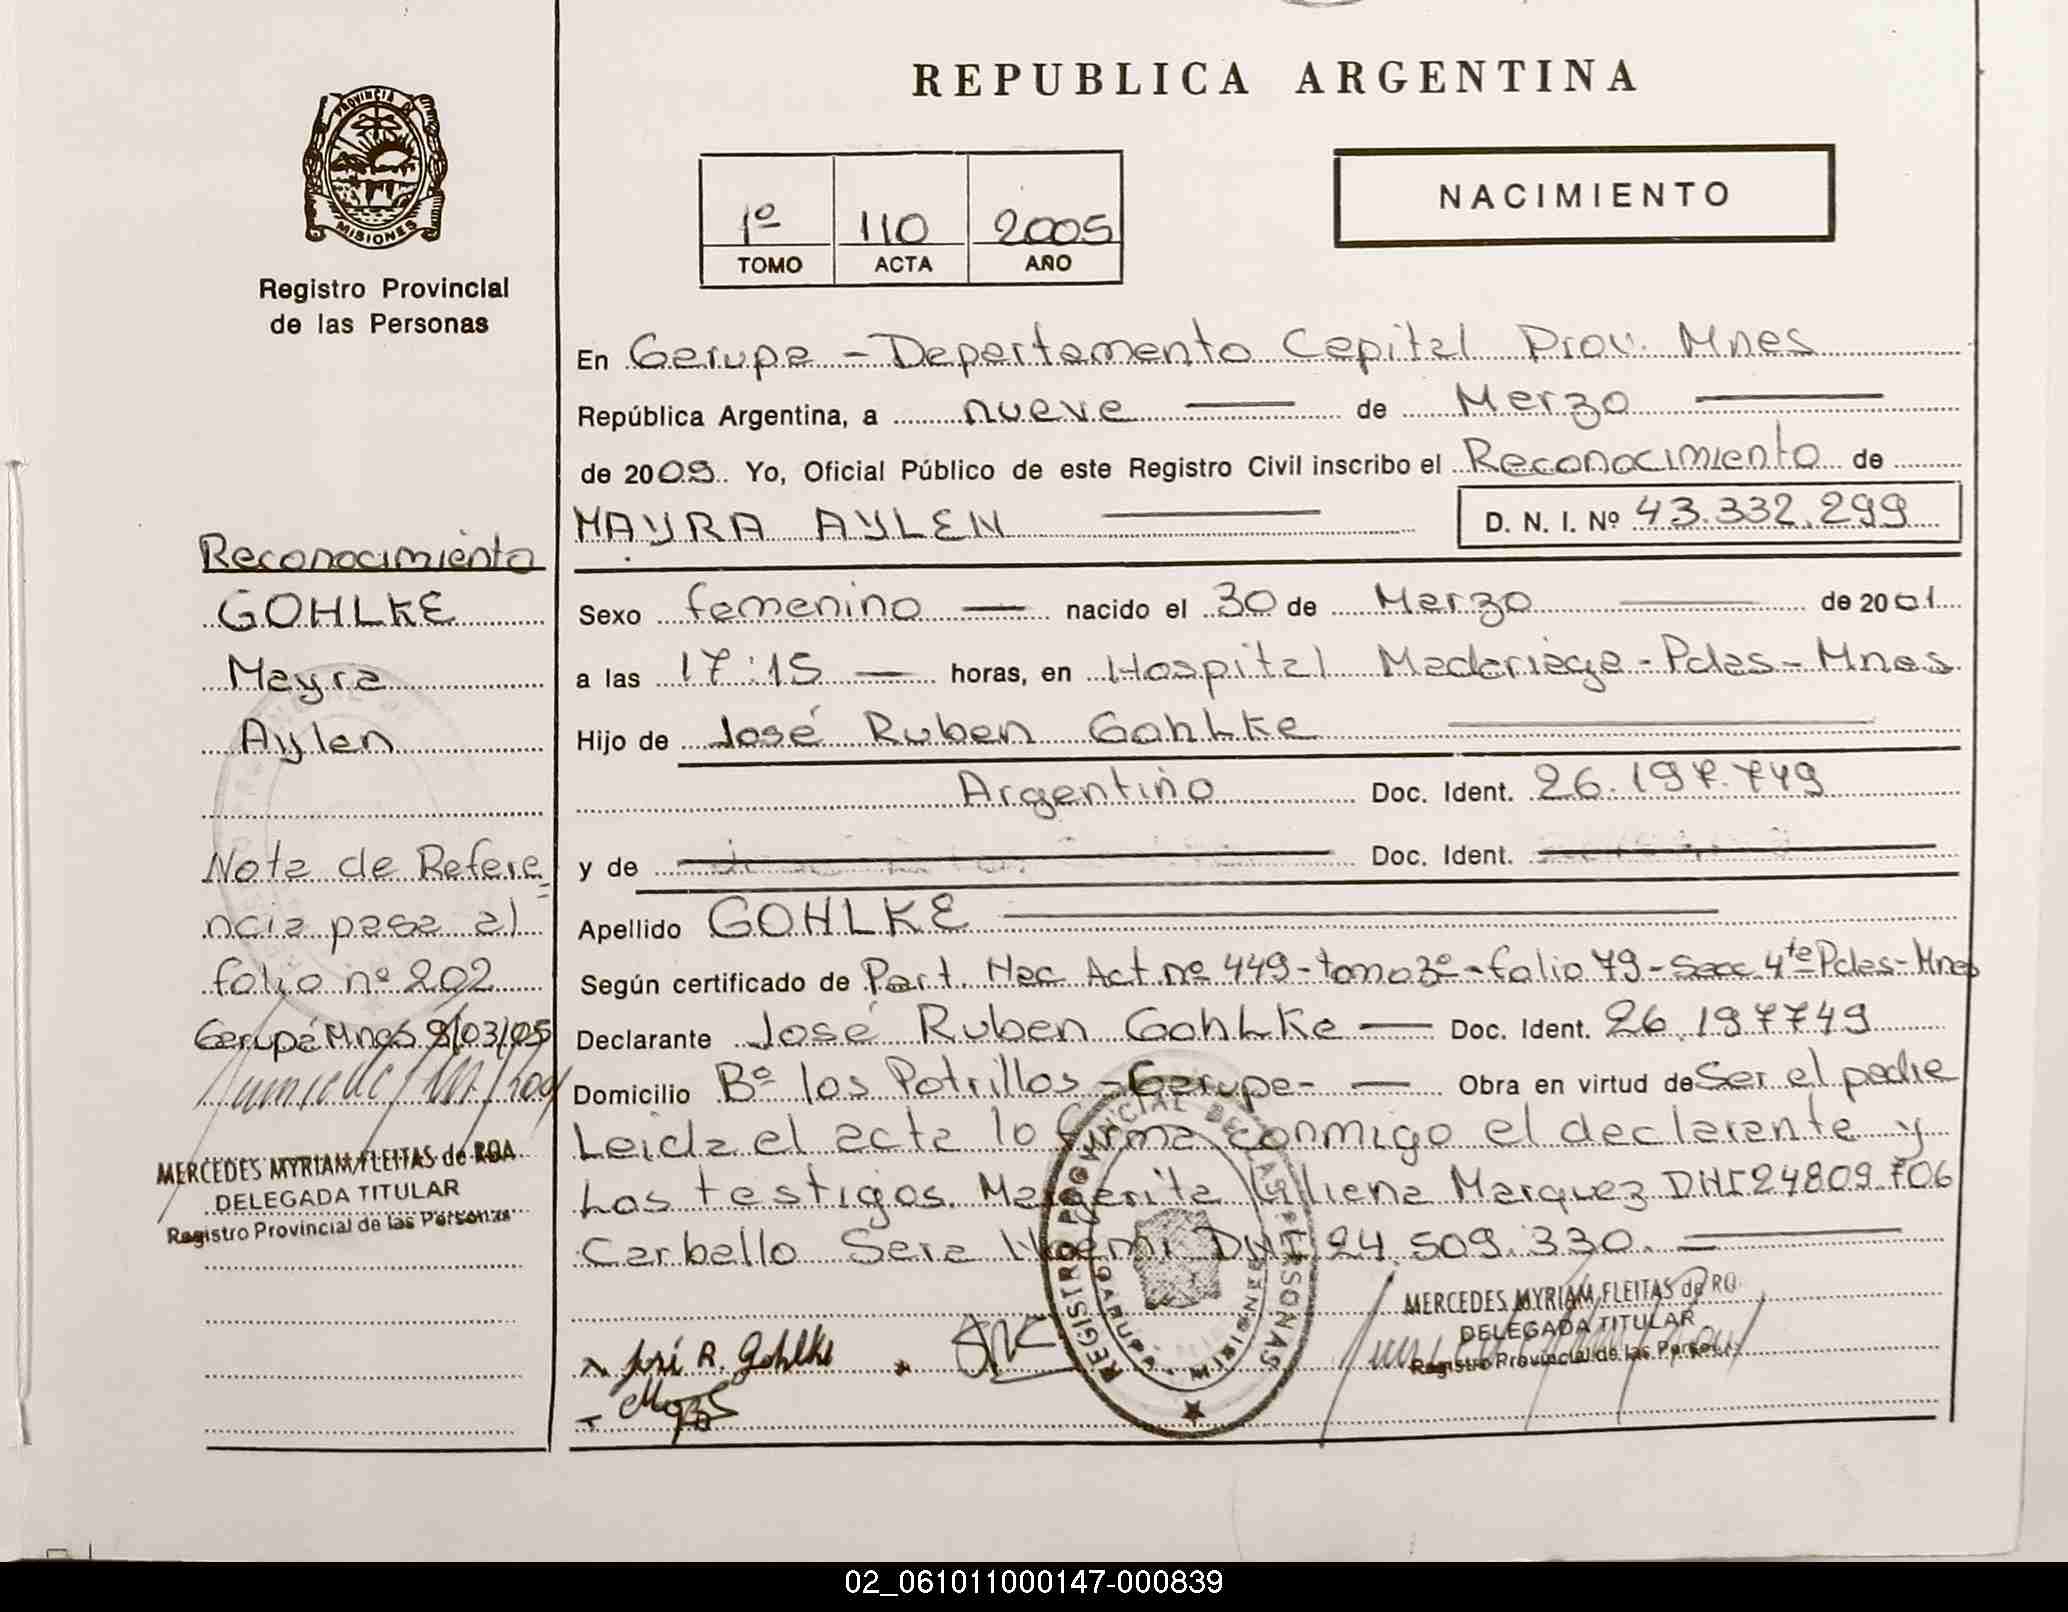 REPUBLICA ARGENTINA
PROVINCIA DE
MISIONES
Registro Provincial
de las Personas
NACIMIENTO
1º 110 2005
TOMO ACTA AÑO
En Garupa - Departamento Capital Prov. Mnes
República Argentina, a nueve — de Marzo —
de 2005. Yo, Oficial Público de este Registro Civil inscribo el Reconocimiento de
MAYRA AYLEN — D. N. I. Nº 43.332.299
Sexo femenino — nacido el 30 de Marzo — de 2001
a las 17:15 — horas, en Hospital Madariaga - Pdas - Mnes
Hijo de José Ruben Gohlke —
Argentino Doc. Ident. 26.197.749
y de — Doc. Ident. —
Apellido GOHLKE —
Según certificado de Part. Nac Act. nº 449 - tomo 3º - folio 79 - Secc 4ta Pdas - Mnes
Declarante José Ruben Gohlke — Doc. Ident. 26.197749
Domicilio Bº los Potrillos - Garupa - — Obra en virtud de Ser el padre
Leida el acta lo firma conmigo el declarante y
Los testigos. Margarita Liliana Marquez DNI 24809.706
Carballo Sara Noemi DNI 24.509.330. —
José R. Gohlke
MERCEDES MYRIAM FLEITAS de RO
DELEGADA TITULAR
Registro Provincial de las Person
REGISTRO PROVINCIAL DE LAS PERSONAS
GARUPA - MISIONES
Reconocimiento
GOHLKE
Mayra
Aylen
Nota de Refere
ncia pasa al
folio nº 202
Garupá Mnes 9/03/05
MERCEDES MYRIAM FLEITAS de ROA
DELEGADA TITULAR
Registro Provincial de las Personas
02_061011000147-000839